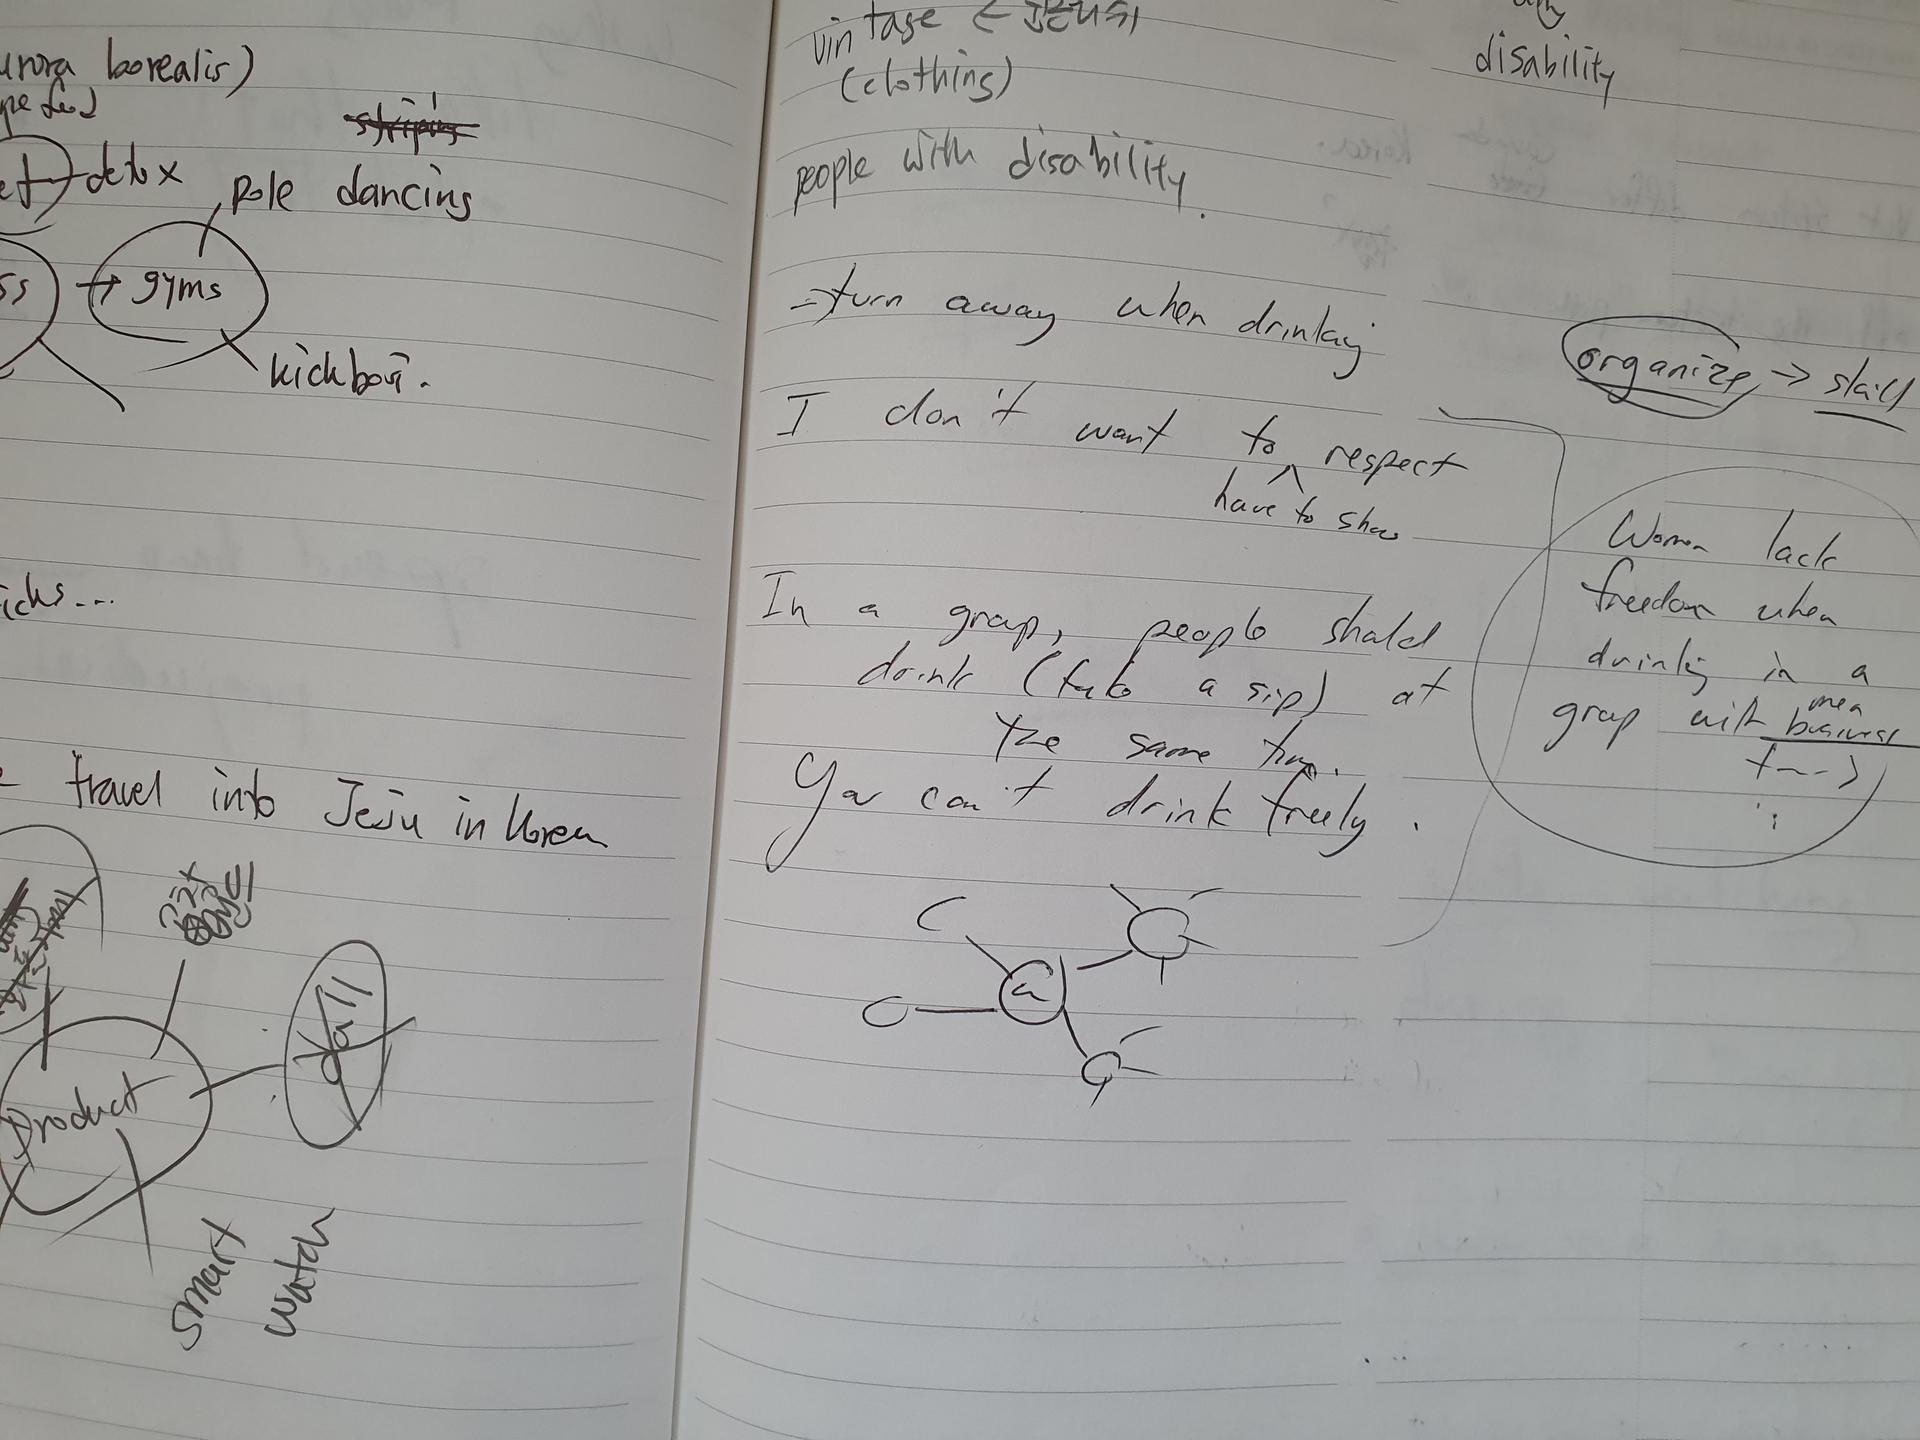 urora borealis)
detox
pole dancing
gyms
kickboxi.
icks...
travel into Jeju in Korea
Product
smart
watch
vintage ←
(clothing)
people with disability.
⇒turn away when drinking
I don't want to respect
have to show
In a group, people should
drink (take a sip) at
the same time.
You can't drink freely.
a
disability
organize → skill
Women lack
freedom when
drinking in a
group with business
men